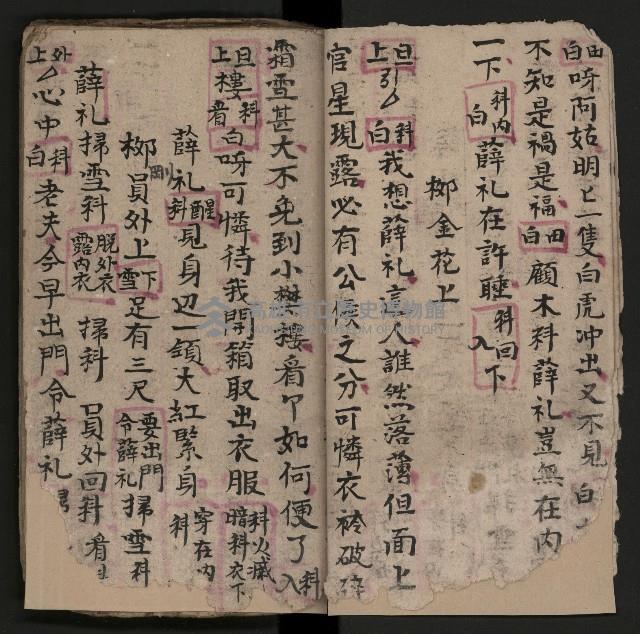 田白呀阿姑明々一隻白虎冲出又不見白
不知是禍是福田白顧木料薛礼豈無在內
一下科內白薛礼在許睡科回入下
柳金花上
旦上引厶科白我想薛礼言人誰然落薄但面上
官星現露必有公之分可憐衣衿破碎
霜雪甚大不免到小樓看卩如何便了科入
旦上樓科看白呀可憐待我開箱取出衣服科火滅暗料衣下
薛礼醒科見身辺一領大紅緊身穿在內科
柳剛員外上下雪足有三尺要出門令薛礼掃雪科
薛礼掃雪科脫外衣露內衣掃科員外回科看
外上厶心中科白老夫今早出門令薛礼
高雄市立歷史博物館
KAOHSIUNG MUSEUM OF HISTORY